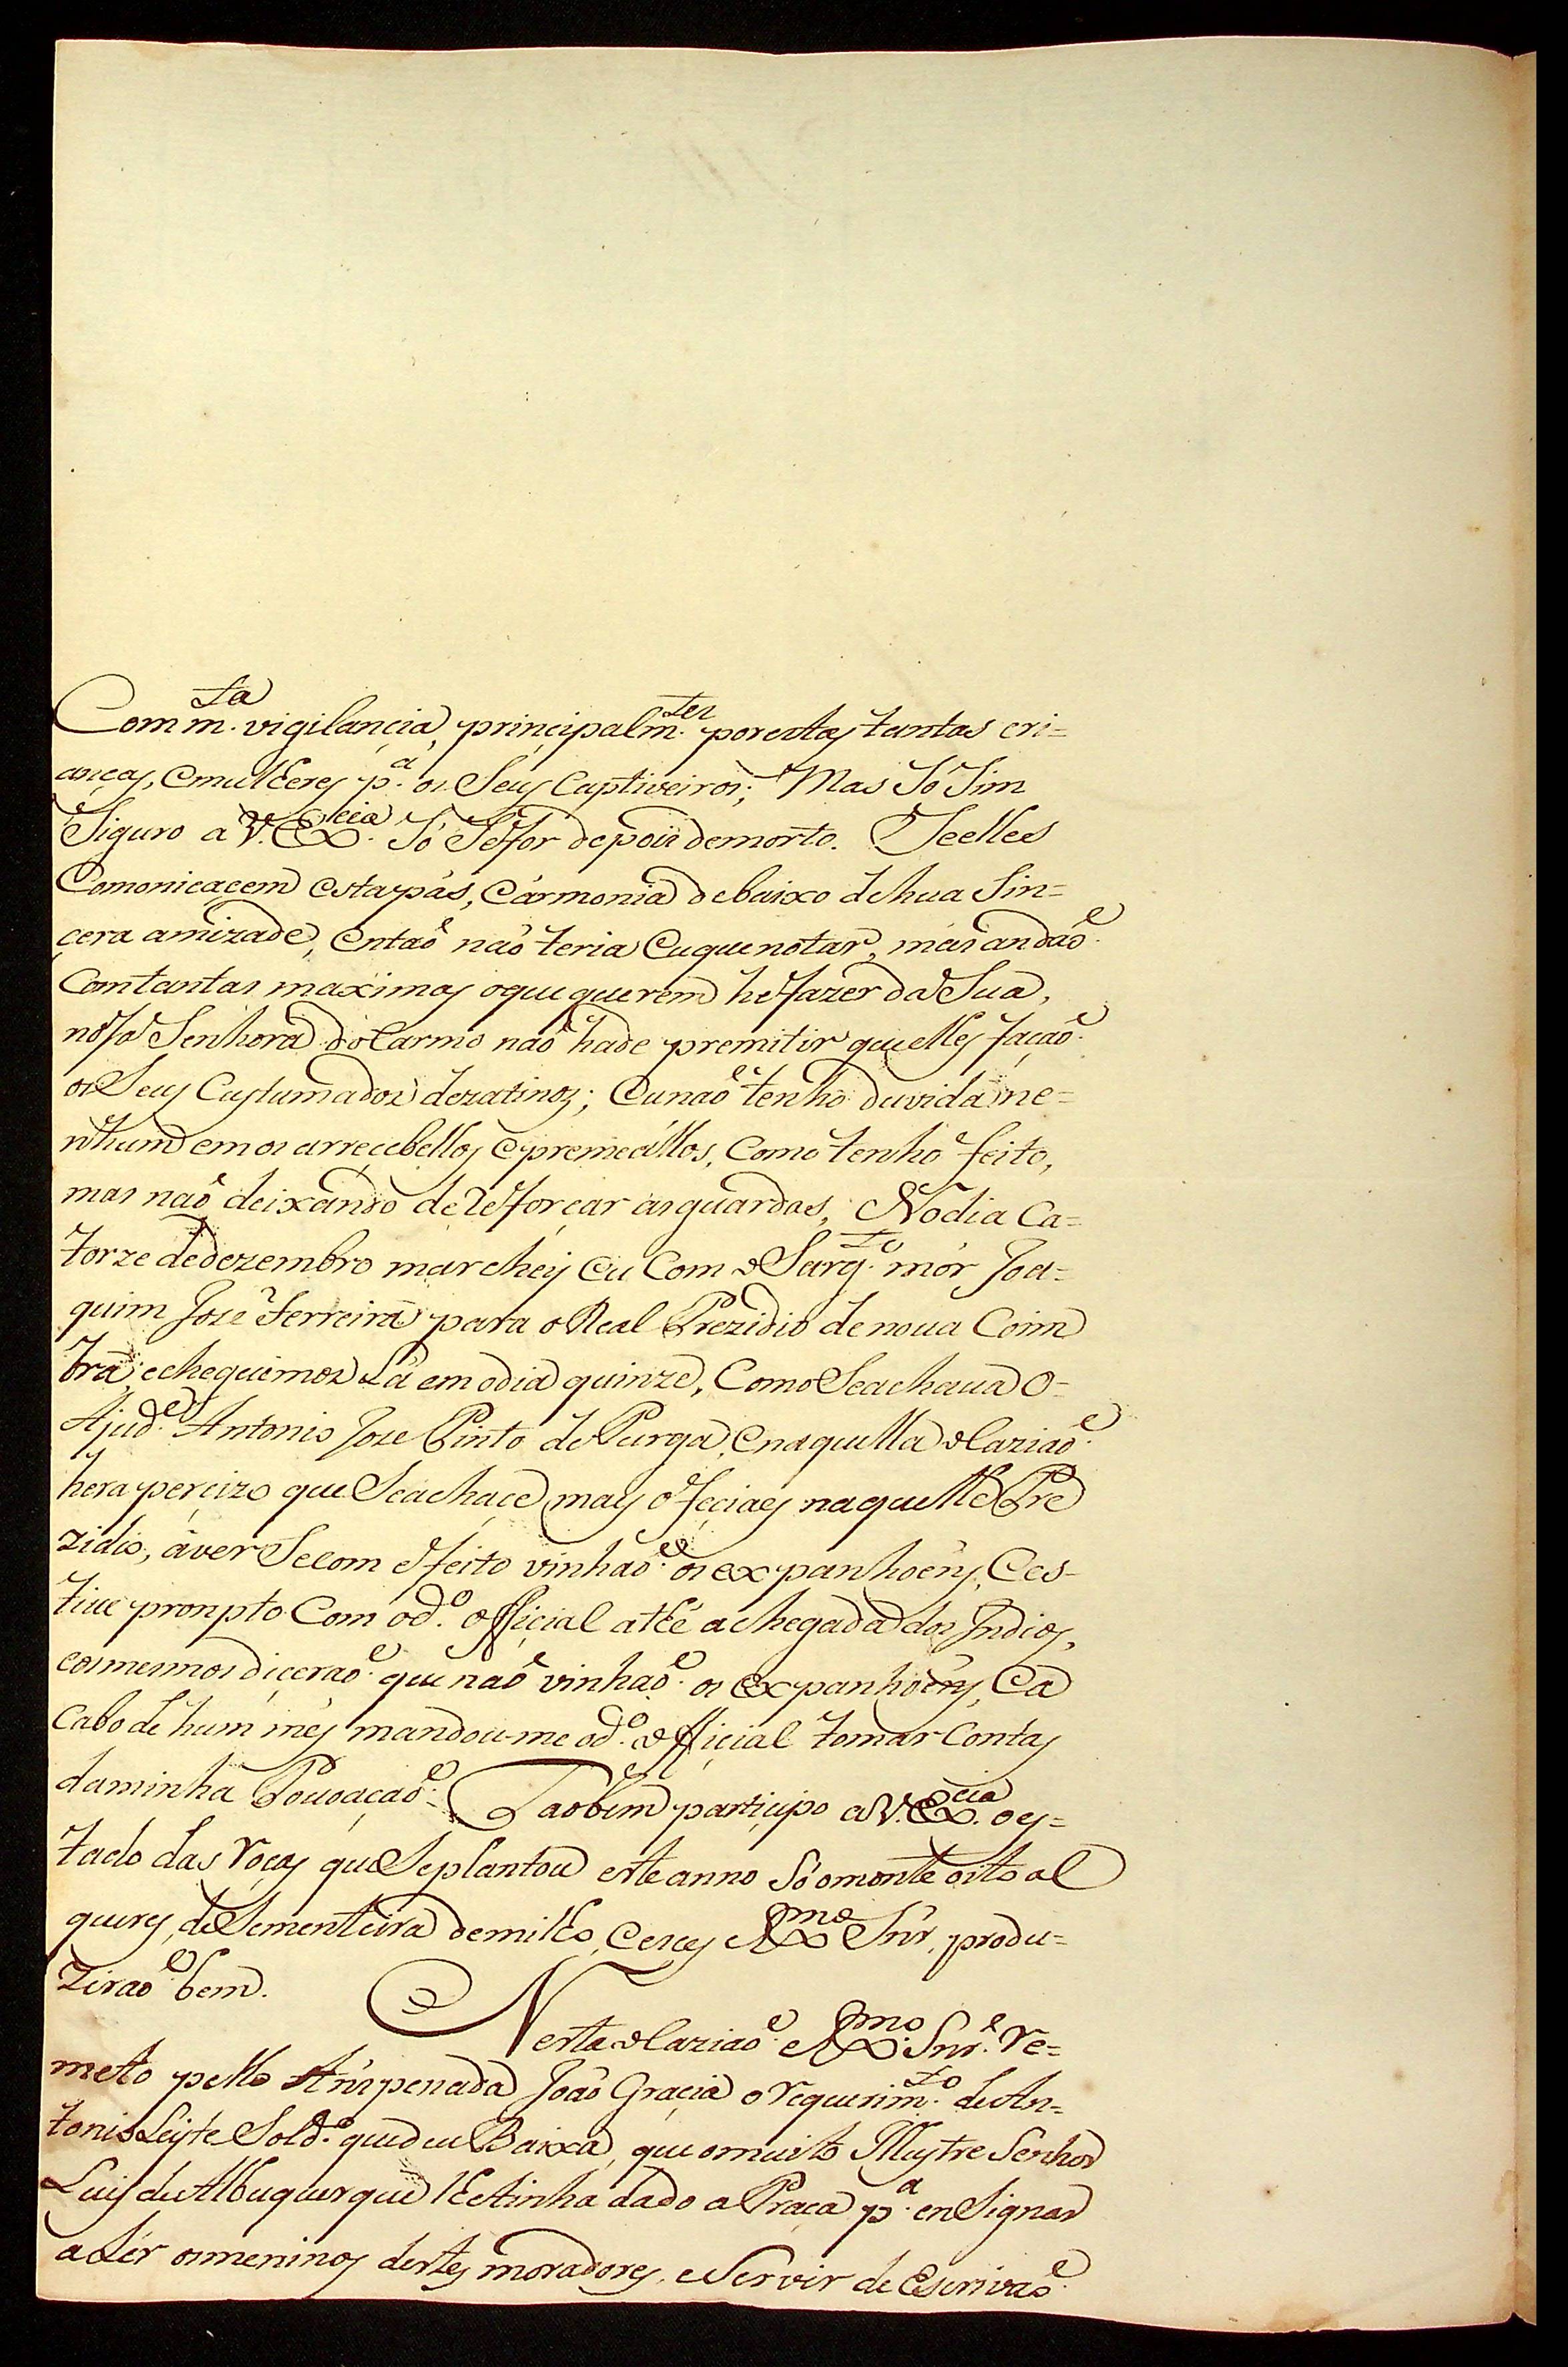 Com m.ta vigilançia, prinçipalm.te por estas tantas cri=
anças, e mulheres p.a os Seus Captiveiros; Mas Só Sim
Siguro a V. Ex.cia Só Se for depois de morto. Se elles
Comonicaçem esta pás, eármonia debaixo de hua Sin=
çera amizade, entaõ naõ teria eu que notar, mas andaõ
Com tantas maximas o que querem he fazer da Sua,
nossa Senhora do Carmo naõ hade premitir que elles façaõ
os Seus Custumados dezatinos; Eu naõ tenho duvida ne=
nhum em os arreçebellos e premeallos, Como tenho feito,
mas naõ deixando de Reforçar as guardas, No dia Ca=
torze de dezembro marchey eu Com o Sarg.to mór Joa=
quim Joze Ferreira para o Real Prezidio de noua Coim
bra, e cheguemos Lá em o dia quinze, Como Se achaua o=
Ajud.e Antonio Joze Pinto de Purga, e naquella ocaziaõ
hera perçizo que Se achaçe mays ofeçiaes naquelle Pre
zidio, áver Se com efeito vinhaõ os expanhoẽns, e es-
tiue pronpto Com o d.o offiçial athé a chegada dos Indios,
e os mesmos diçeraõ que naõ vinhaõ os expanhoẽns, e a
Cabo de hum mês mandou-me o d.o offiçial tomar Contas
da minha Pouoaçaõ. Taobem partiçipo a V. Ex.cia o es=
tado das roças que Se plantou este anno Só omonte oito al
queires, de Sementeira de milho, e estes Ex.mo Snr. produ=
ziraõ bem.
Nesta ocaziaõ Ex.mo Snr. Re=
meto pello Anspenada João Graçia o requerim.to de An=
tonio Leyte Sold.o que deu Baixa, que o muito Illustre Senhor
Luis de Albuquerque lhe tinha dado a Praça p.a enSignar
a Lér os meninos destes moradores, e Servir de Escrivaõ